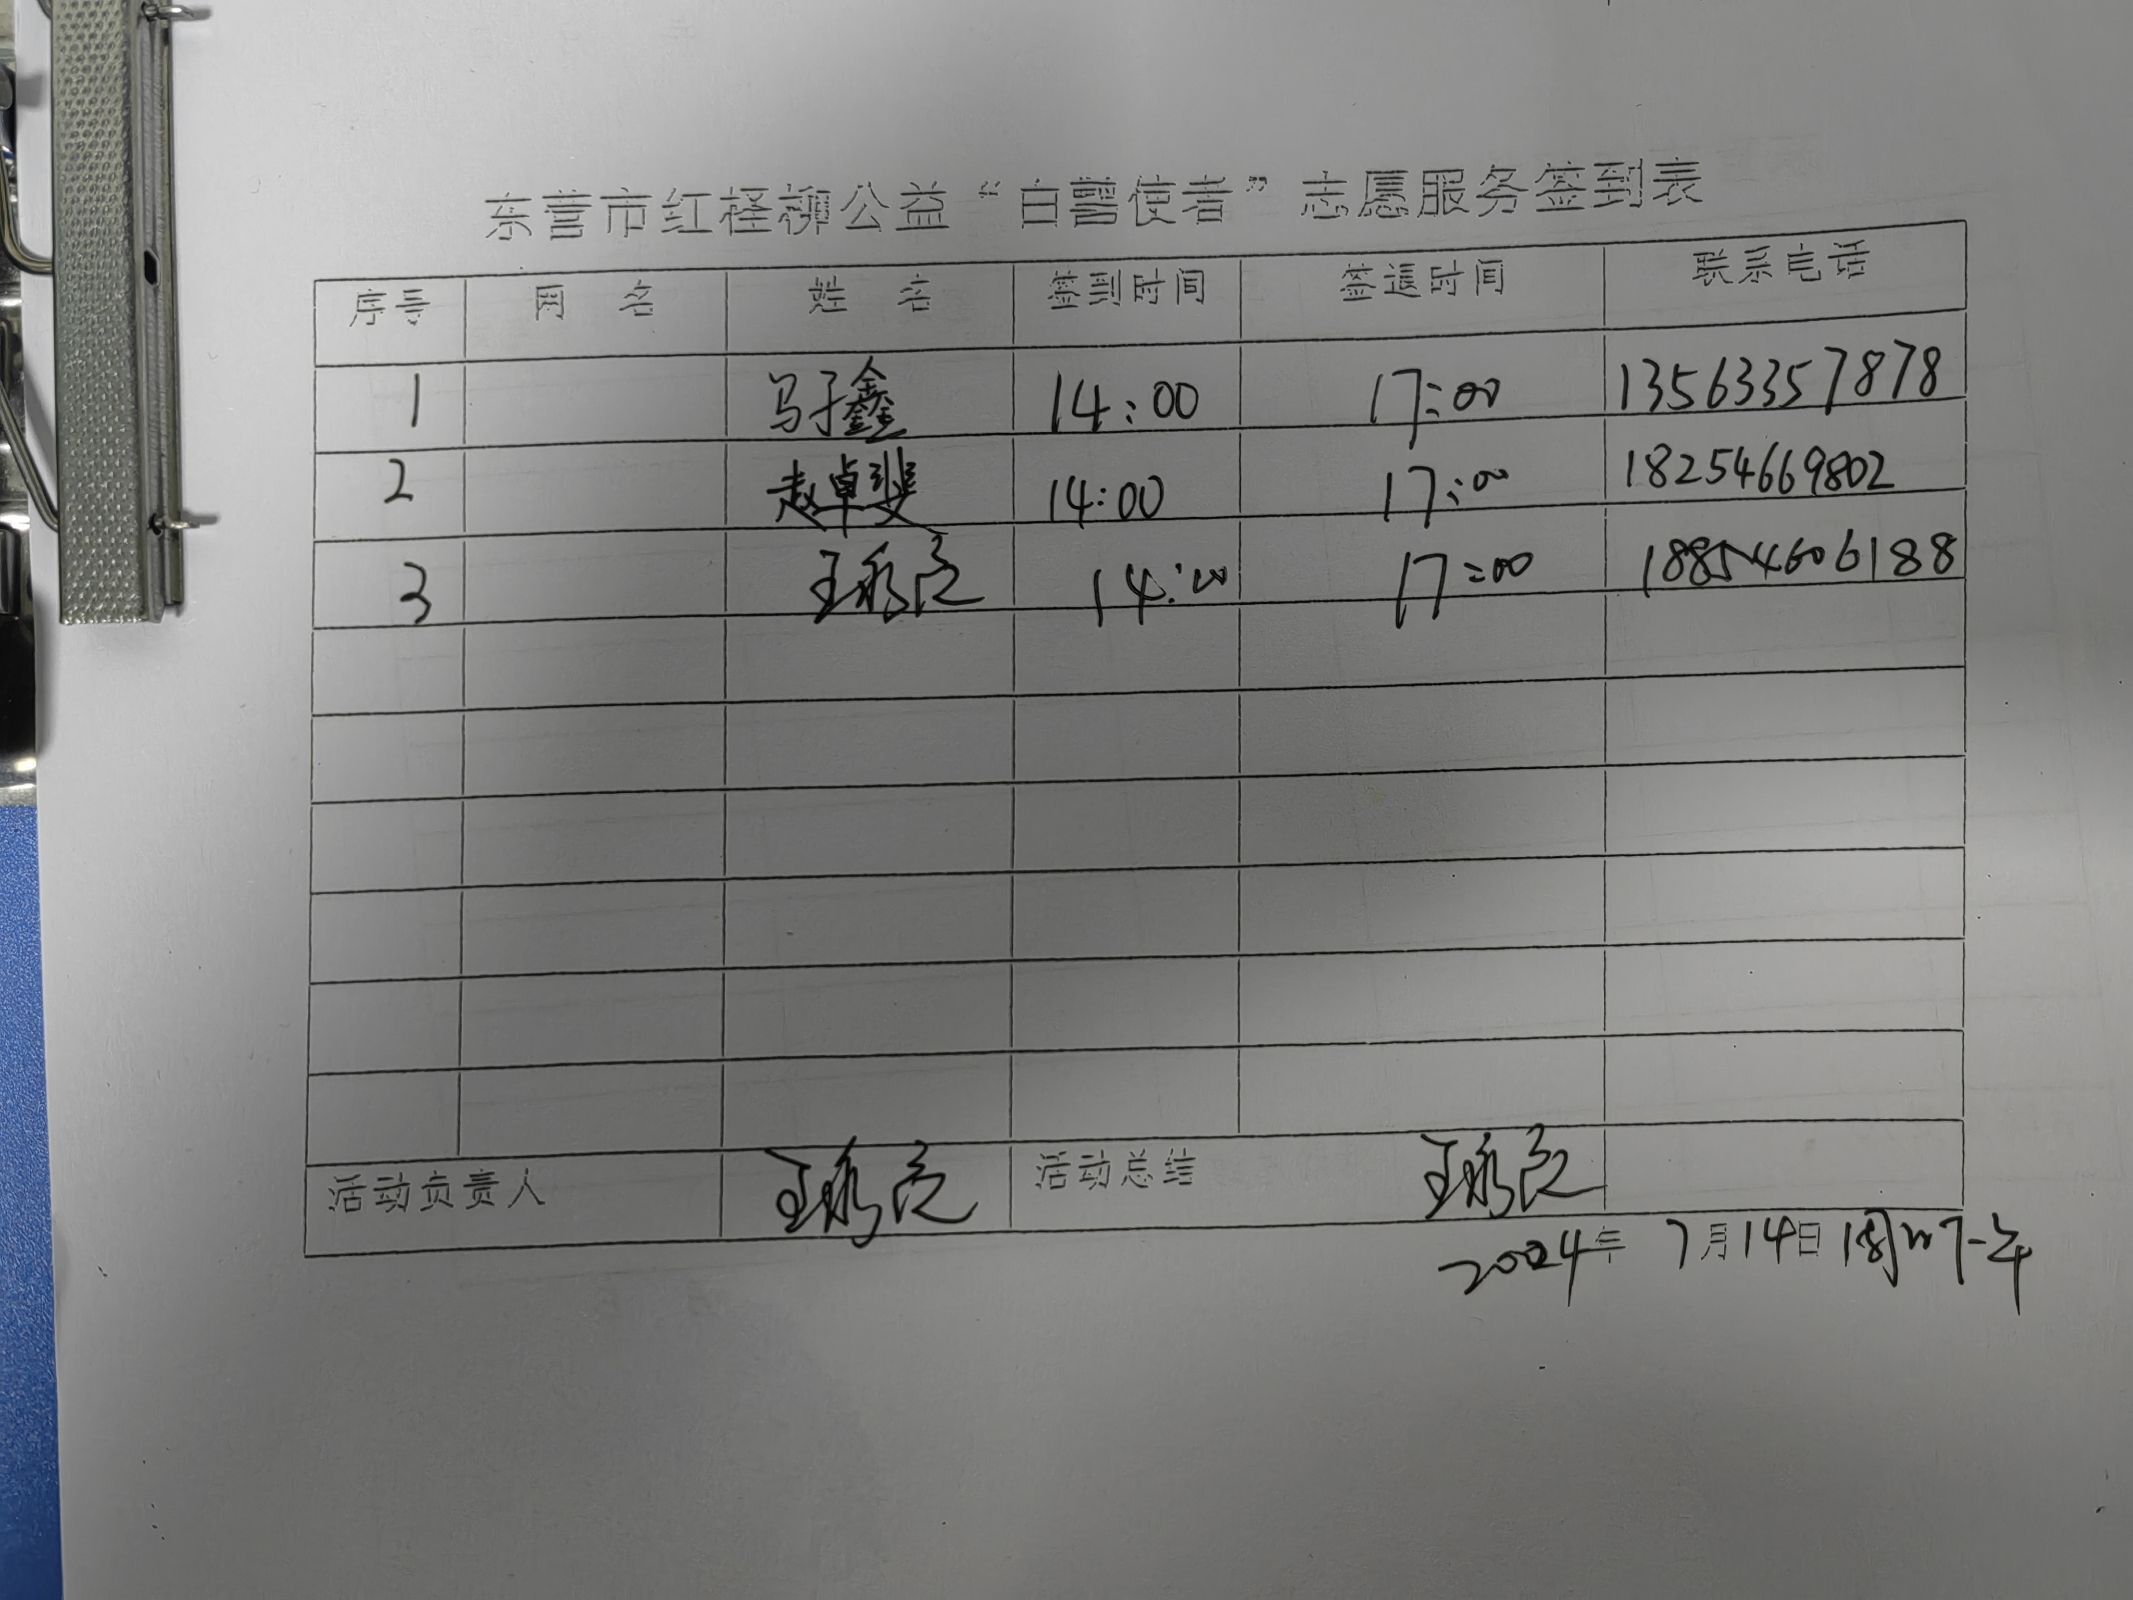 东营市红柽柳公益“白鹭使者”志愿服务签到表
序号 网 名 姓 名 签到时间 签退时间 联系电话
1 马子鑫 14:00 17:00 13563357878
2 赵卓斐 14:00 17:00 18254669802
3 14:00 17:00 18854606188
活动负责人 活动总结
2024年 7月14日 周